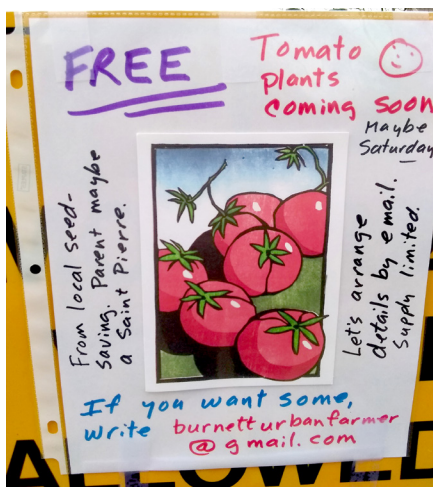 FREE
Tomato
plants
coming soon
Maybe
Saturday
From local seed-
saving. Parent maybe
a Saint Pierre.
Let's arrange
details by email.
Supply limited.
If you want some,
write burnetturbanfarmer
@gmail.com
ALLOWED